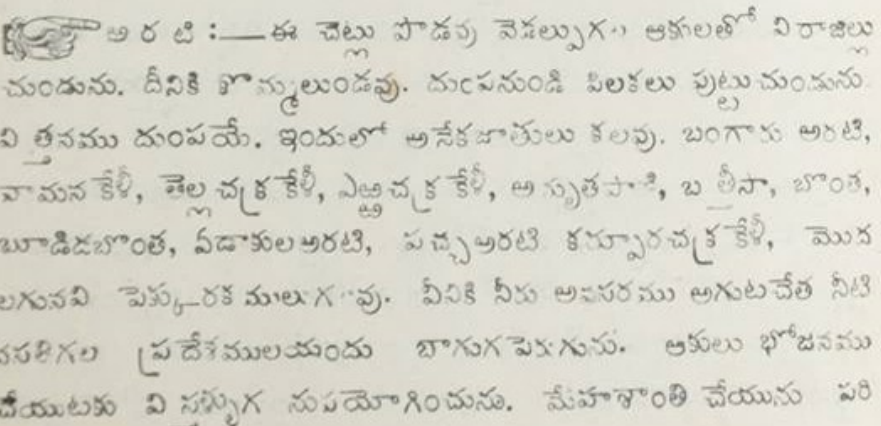 అ ర టి :— ఈ చెట్లు పొడవు వెడల్పుగల ఆకులతో విరాజిల్లు
చుండును. దీనికి కొమ్మలుండవు. దుంపనుండి పిలకలు పుట్టుచుండును
విత్తనము దుంపయే. ఇందులో అనేకజాతులు కలవు. బంగారు అరటి,
వామన కేళీ, తెల్ల చక్రకేళీ, ఎఱ్ఱచక్రకేళీ, అమృతపాణి, బత్తీసా, బొంత,
బూడిదబొంత, ఏడాకుల అరటి, పచ్చఅరటి కర్పూరచక్రకేళీ, మొద
లగునవి పెక్కు రకములుగలవు. వీనికి నీరు అవసరము అగుటచేత నీటి
వసతిగల ప్రదేశములయందు బాగుగ పెరుగును. ఆకులు భోజనము
చేయుటకు విస్తళ్ళుగ నుపయోగించును. మేహశాంతి చేయును పరి